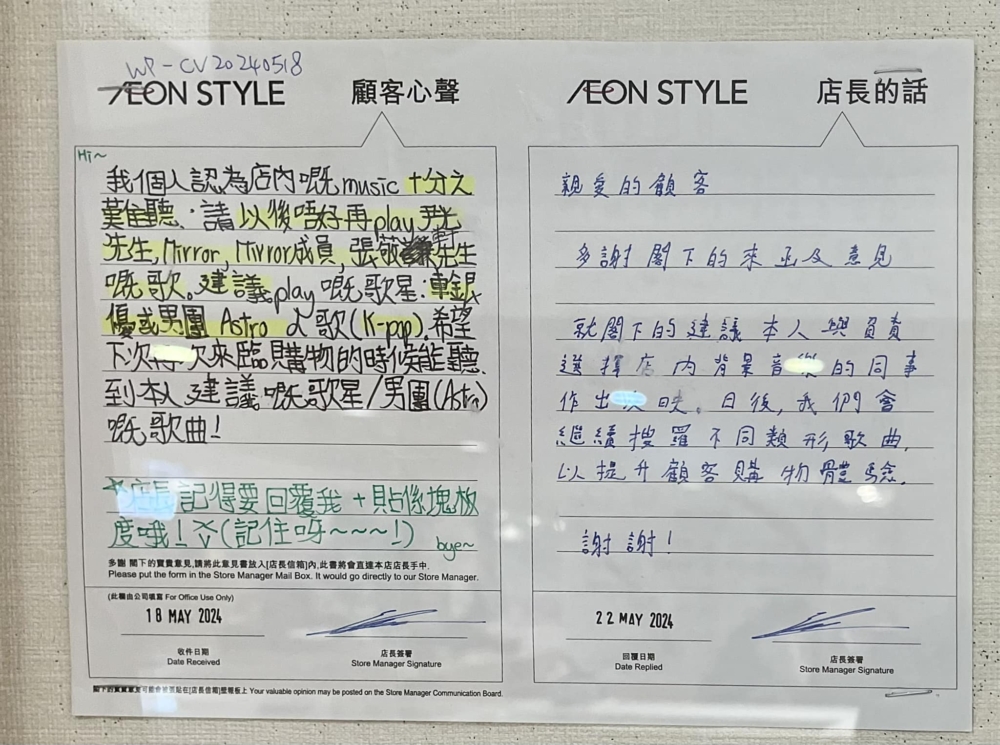 WP-CV20240518
ÆON STYLE 顧客心聲
Hi~
我個人認為店內嘅music十分之
難聽.請以後唔好再play尹光
先生,Mirror,Mirror成員,張敬軒先生
嘅歌。建議play嘅歌星:車銀
優或男團 Astro 之歌(K-pop).希望
下次再次來臨購物的時侯能聽
到本人建議嘅歌星/男團(Astro)
嘅歌曲!
店長記得要回覆我+貼係塊板
度哦!(記住呀~~~!)
bye~
多謝 閣下的寶貴意見,請將此意見書放入[店長信箱]內,此書將會直達本店店長手中.
Please put the form in the Store Manager Mail Box. It would go directly to our Store Manager.
(此欄由公司填寫 For Office Use Only)
18 MAY 2024
收件日期 店長簽署
Date Received Store Manager Signature
閣下的寶貴意見可能會被張貼在[店長信箱]壁報板上 Your valuable opinion may be posted on the Store Manager Communication Board.
ÆON STYLE 店長的話
親愛的顧客
多謝閣下的來函及意見
就閣下的建議本人與負責
選擇店內背景音樂的同事
作出反映。日後,我們會
繼續搜羅不同類形歌曲,
以提升顧客購物體驗.
謝謝!
22 MAY 2024
回覆日期 店長簽署
Date Replied Store Manager Signature